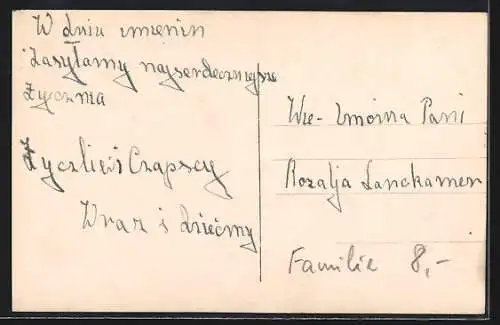 W dniu imienin
Zasyłamy najserdeczniejsze
Życzma
Życzliwi Czapscy
Wraz i dziećmy
Wie-lmożna Pani
Rozalja Lanckamer
Familie 8,-